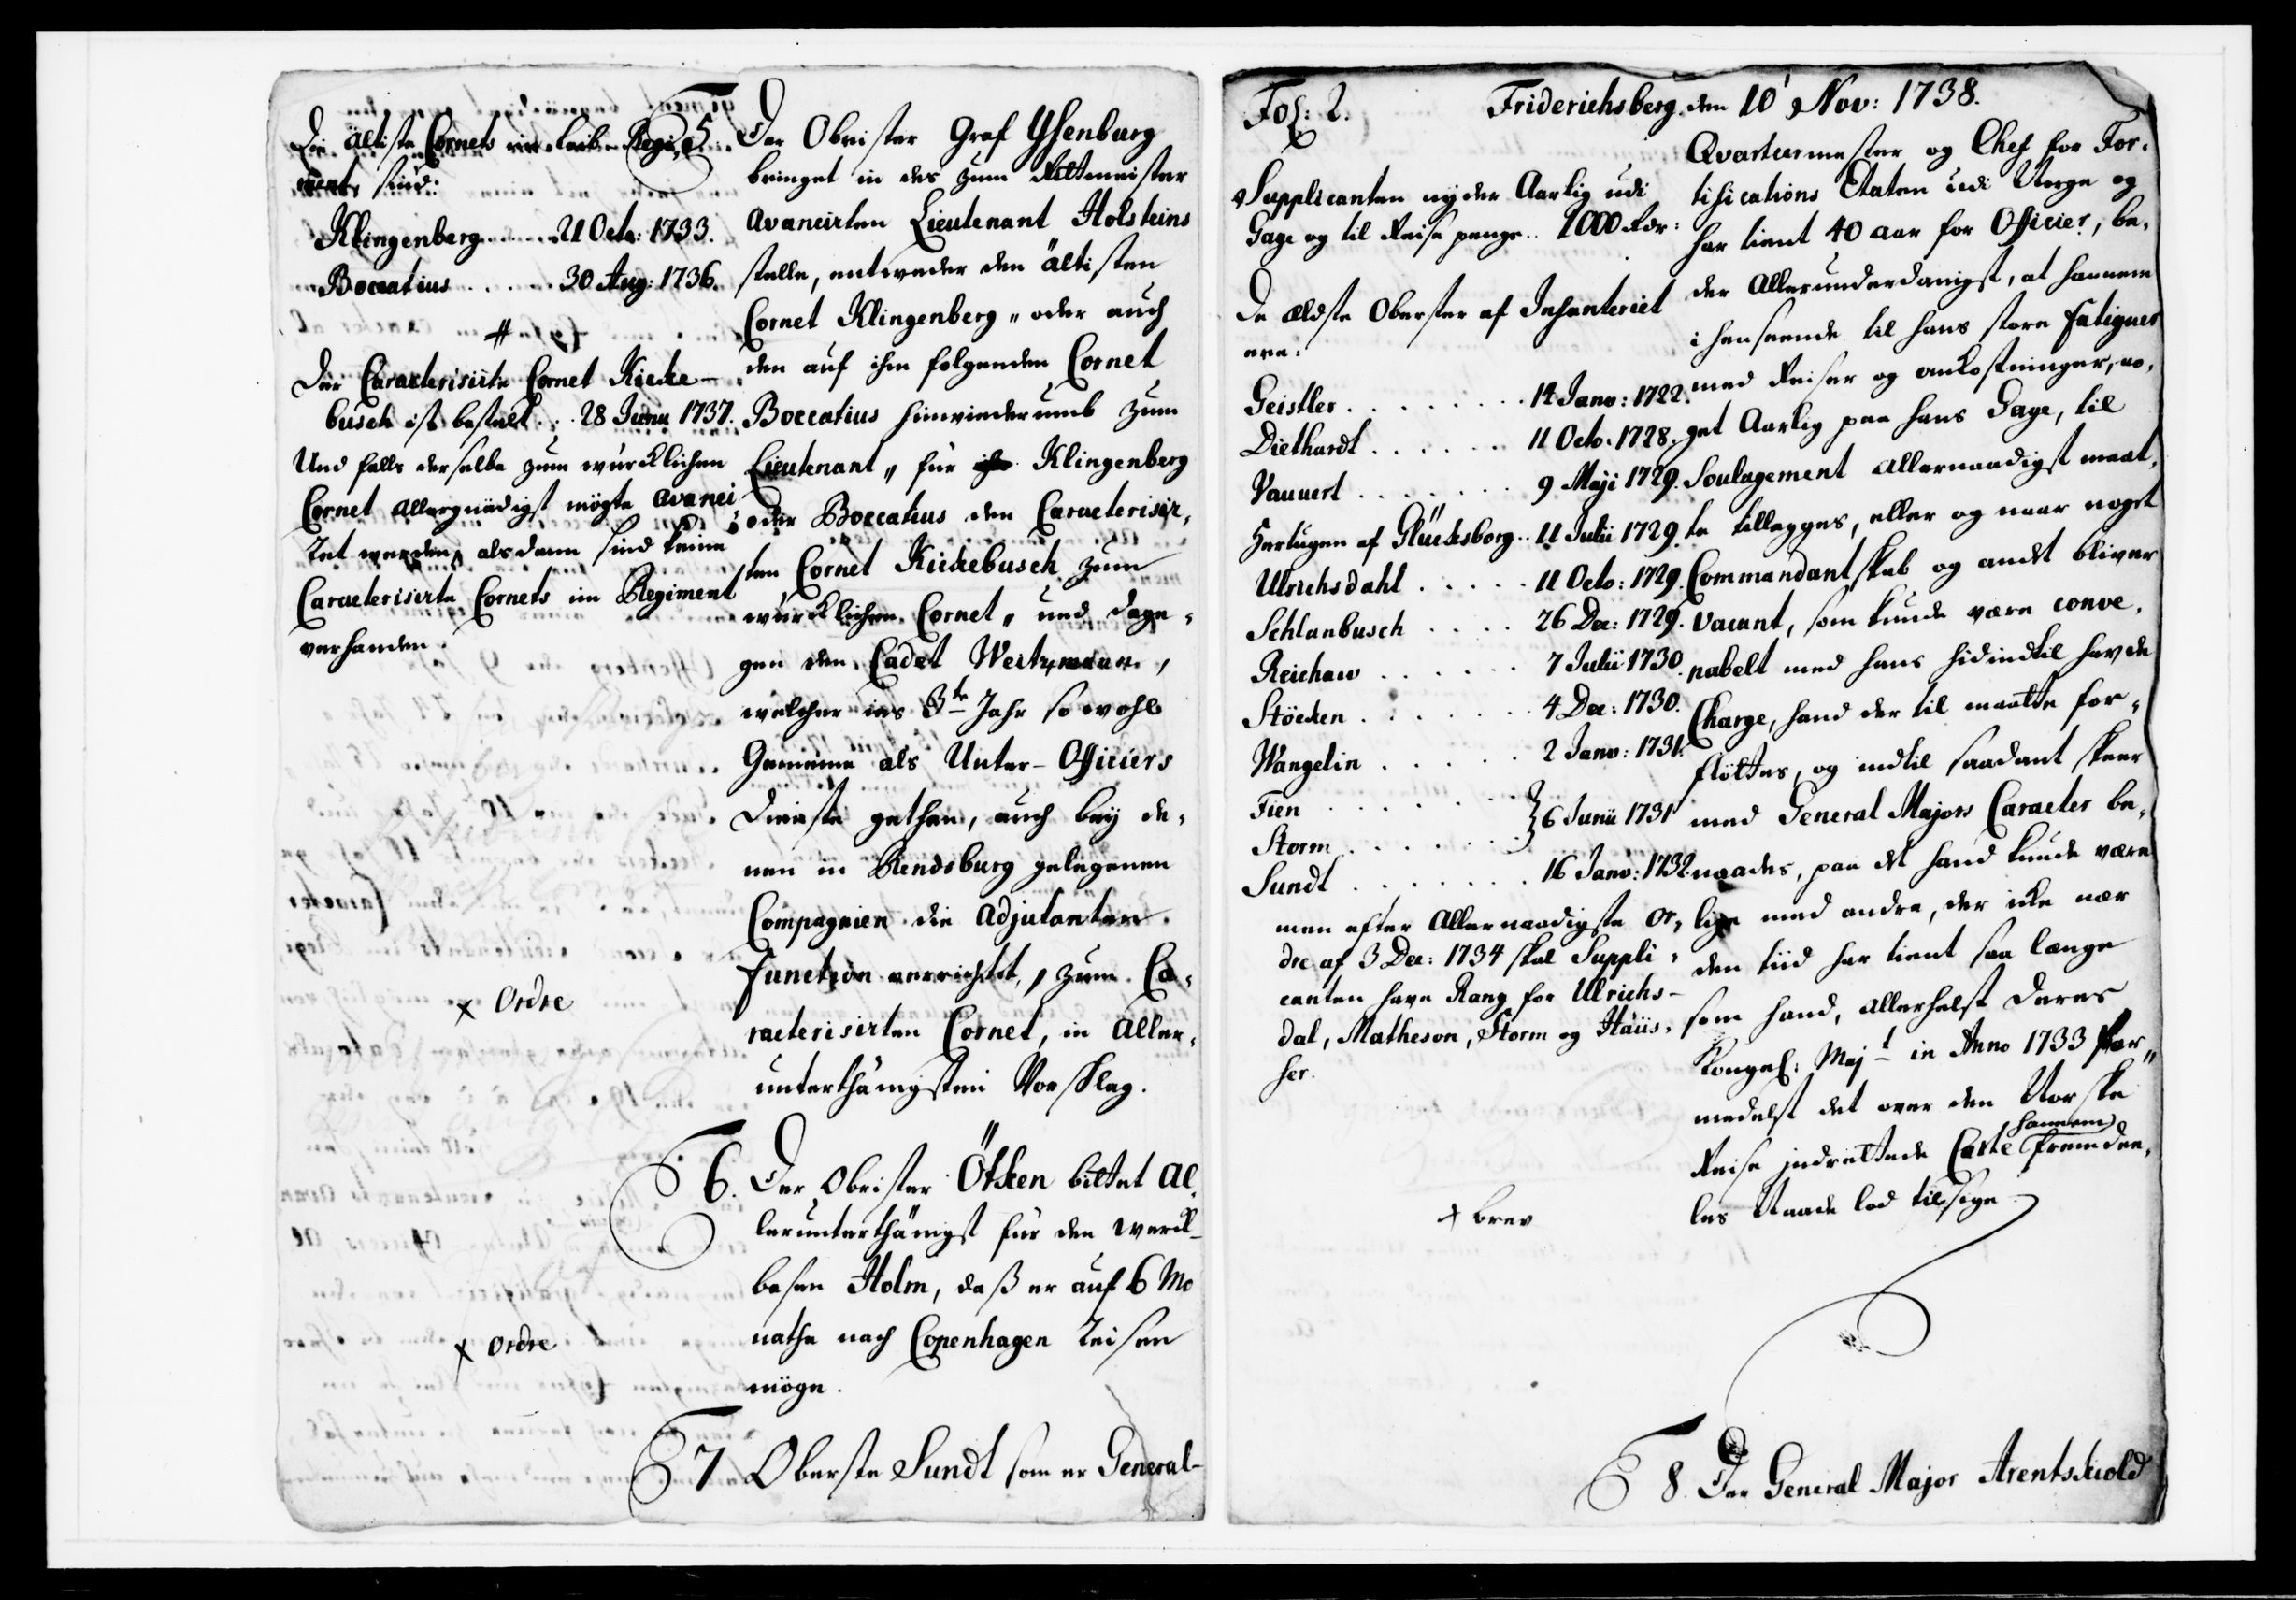 Die ältiste Cornets im Leib-Regi-
ment sind:
Klingenberg ...... 21 Octo: 1733.
Boccatius ..... 30 Aug: 1736.
#
Der Caracterisirte Cornet Kieke-
busch ist bestalt .. 28 Junii 1737.
Und falls derselbe zum würcklichen
Cornet allergnädigst mögte avanci-
ret werden, alsdann sind keine
Caracterisirte Cornets im Regiment
verhanden.
x Ordre
x Ordre
5. Der Obrister Graf Ysenburg
bringet in des zum Rittmeister
avancirten Lieutenant Holsteins
stelle, entweder den ältisten
Cornet Klingenberg „ oder auch
den auf ihm folgenden Cornet
Boccatius hinwiederumb zum
Lieutenant „ für Klingenberg
oder Boccatius den Caracterisir-
ten Cornet Kiekebusch zum
würcklichen Cornet „ und dage-
gen den Cadet Weitzmann,
welcher ins 3te Jahr so wohl
Gemeine als Unter-Officiers
Dienste gethan, auch bey de-
nen in Rendsburg gelegenen
Compagnien die Adjutanten
Function verrichtet, zum Ca-
racterisirten Cornet, in aller-
unterthänigsten Vorschlag.
6. Der Obrister Ötken bittet al-
lerunterthänigst für den
Holm, daß er auf 6 Mo
nathe nach Copenhagen reisen
möge.
7 Oberste Sundt som er General-
Fol: 2. Friderichsberg den 10' Nov: 1738.
Supplicanten nyder Aarlig udi
Gage og til Reise penge .. 1000 Rdr:
De ældste Oberster af Infanteriet
ere:
Geistler ........ 14 Janv: 1722.
Diethardt ...... 11 Octo: 1728.
Vauvert ....... 9 Maji 1729.
Hertugen af Glücksborg .. 11 Julii 1729.
Ulrichsdahl ..... 11 Octo: 1729.
Schlanbusch .... 26 Dec: 1729.
Reichaw ...... 7 Julii 1730.
Stöcken ....... 4 Dec: 1730.
Wangelin ..... 2 Janv: 1731.
Fien .......
Storm ...... } 6 Junii 1731
Sundt ....... 16 Janv: 1732.
men efter Allernaadigste Or-
dre af 3 Dec: 1734 skal Suppli-
canten have Rang for Ulrichs-
dal, Matheson, Storm og Haüs-
her.
x brev
Qvarteermester og Chef for For-
tifications Etaten udi Norge og
har tient 40 aar for Officier, be-
der Allerunderdanigst, at hannem
i henseende til hans store fatigues
med Reiser og omkostninger, no-
get Aarlig paa hans Gage, til
Soulagement allernaadigst maat-
te tillegges, eller og naar noget
Commandantskab og andet bliver
vacant, som kunde være conve-
nabelt med hans hidindtil havde
Charge, hand der til maatte for-
flöttes, og indtil saadant skeer
med General Majors Caracter be-
naades, paa det hand kunde være
lige med andre, der icke nær
den tiid har tient saa længe
som hand, allerhelst Deres
Kongel: Majt in Anno 1733 for-
medelst det over den Norske
Reise indrettede Carte hannem fremdee-
les Naade lod tilsige.
8. Der General Major Arentskiold